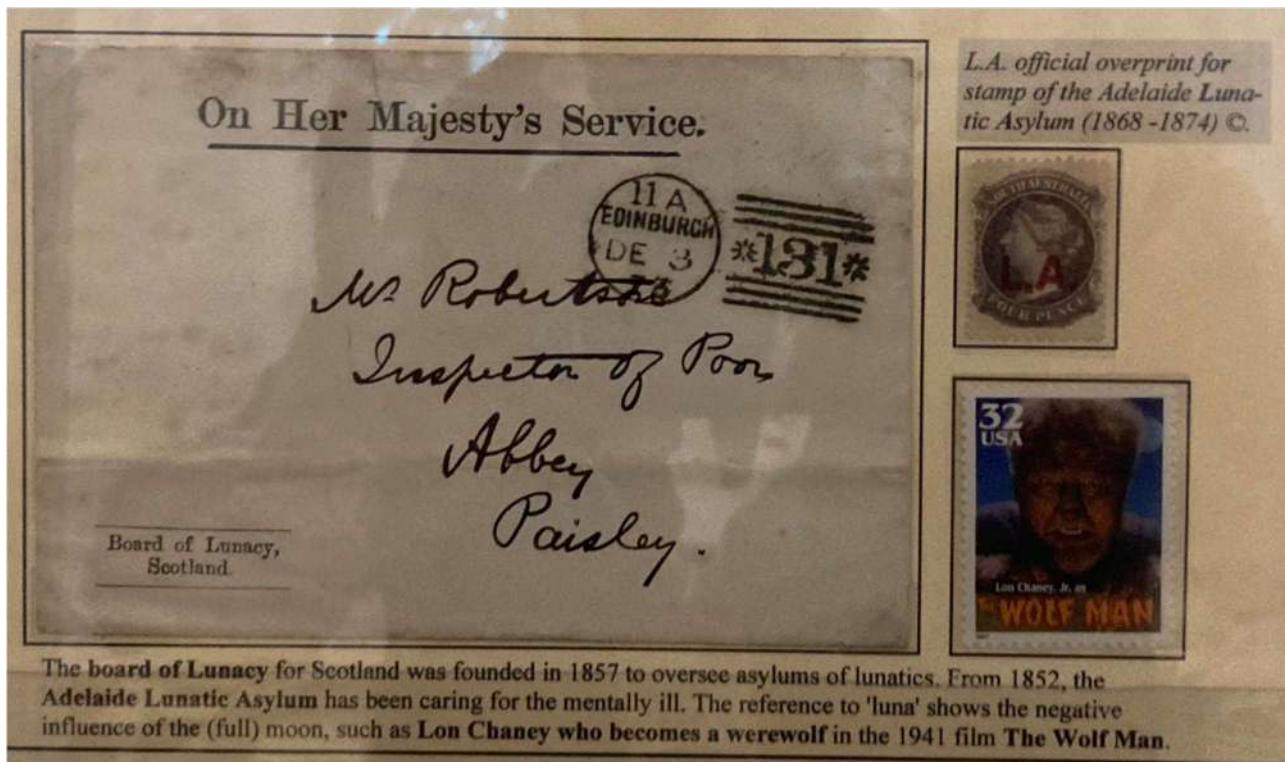 On Her Majesty's Service.
11 A
EDINBURGH
DE 3
*131*
Mr Robertson
Inspector of Poor
Abbey
Paisley.
Board of Lunacy,
Scotland.
L.A. official overprint for
stamp of the Adelaide Luna-
tic Asylum (1868 -1874) ©.
SOUTH AUSTRALIA
L.A.
FOUR PENCE
32
USA
Lon Chaney, Jr. as
THE WOLF MAN
The board of Lunacy for Scotland was founded in 1857 to oversee asylums of lunatics. From 1852, the
Adelaide Lunatic Asylum has been caring for the mentally ill. The reference to 'luna' shows the negative
influence of the (full) moon, such as Lon Chaney who becomes a werewolf in the 1941 film The Wolf Man.